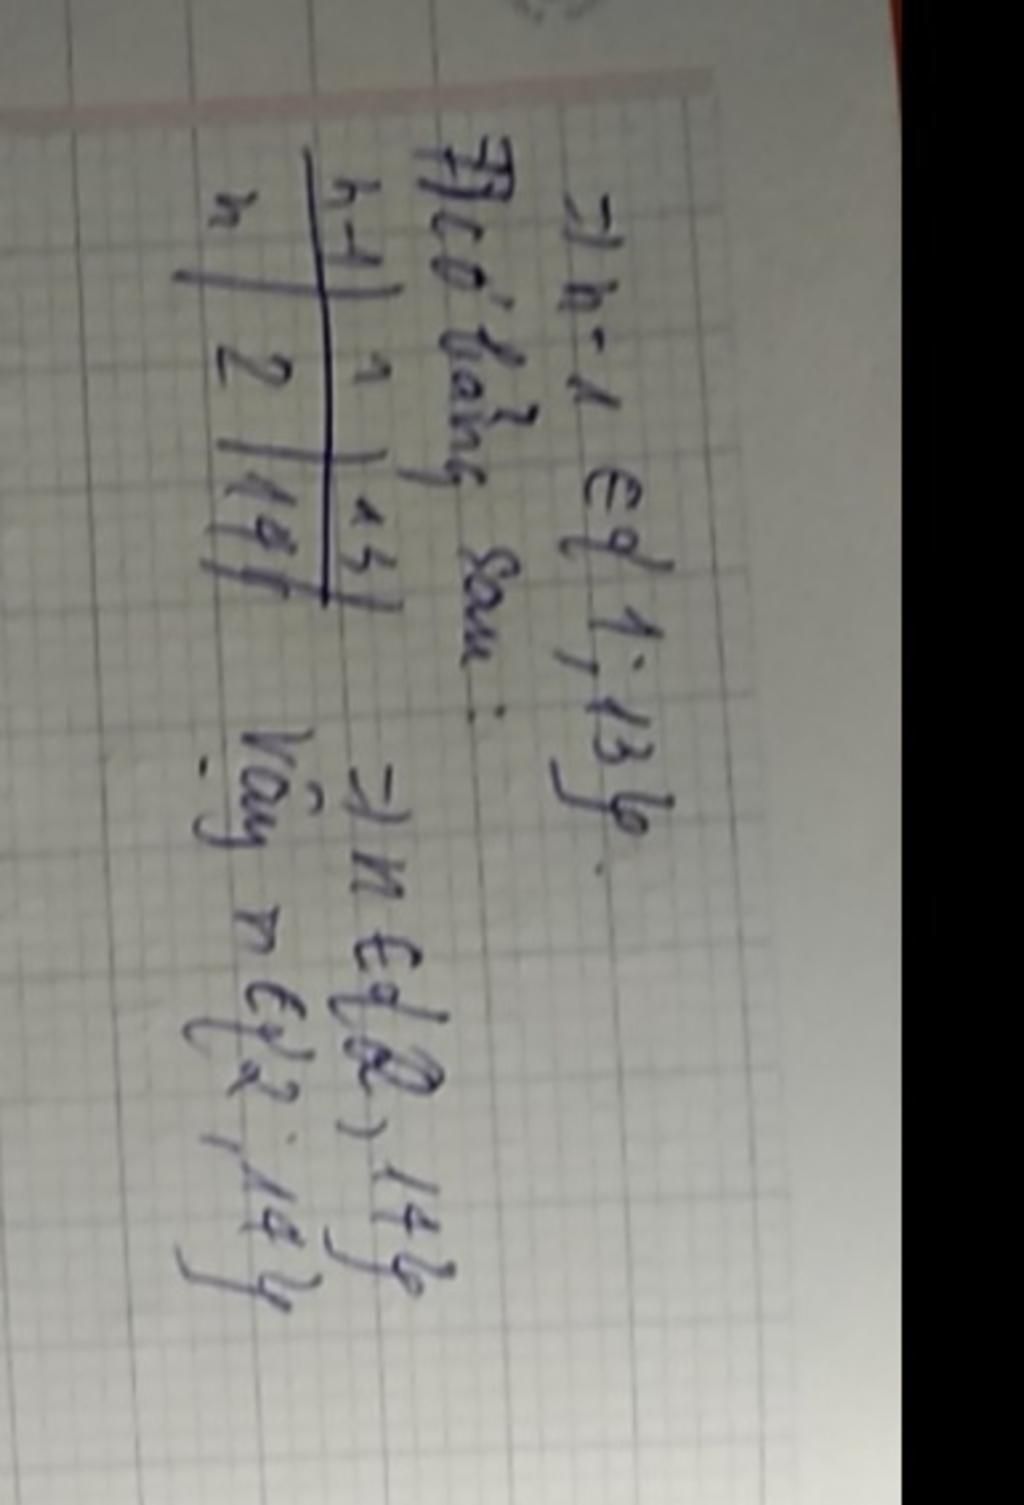 => n-1 ∈ { 1; 13 }.
Ta có bảng sau:
n-1 | 1 | 13 |
n | 2 | 14 |
=> n ∈ { 2; 14 }
Vậy n ∈ { 2; 14 }